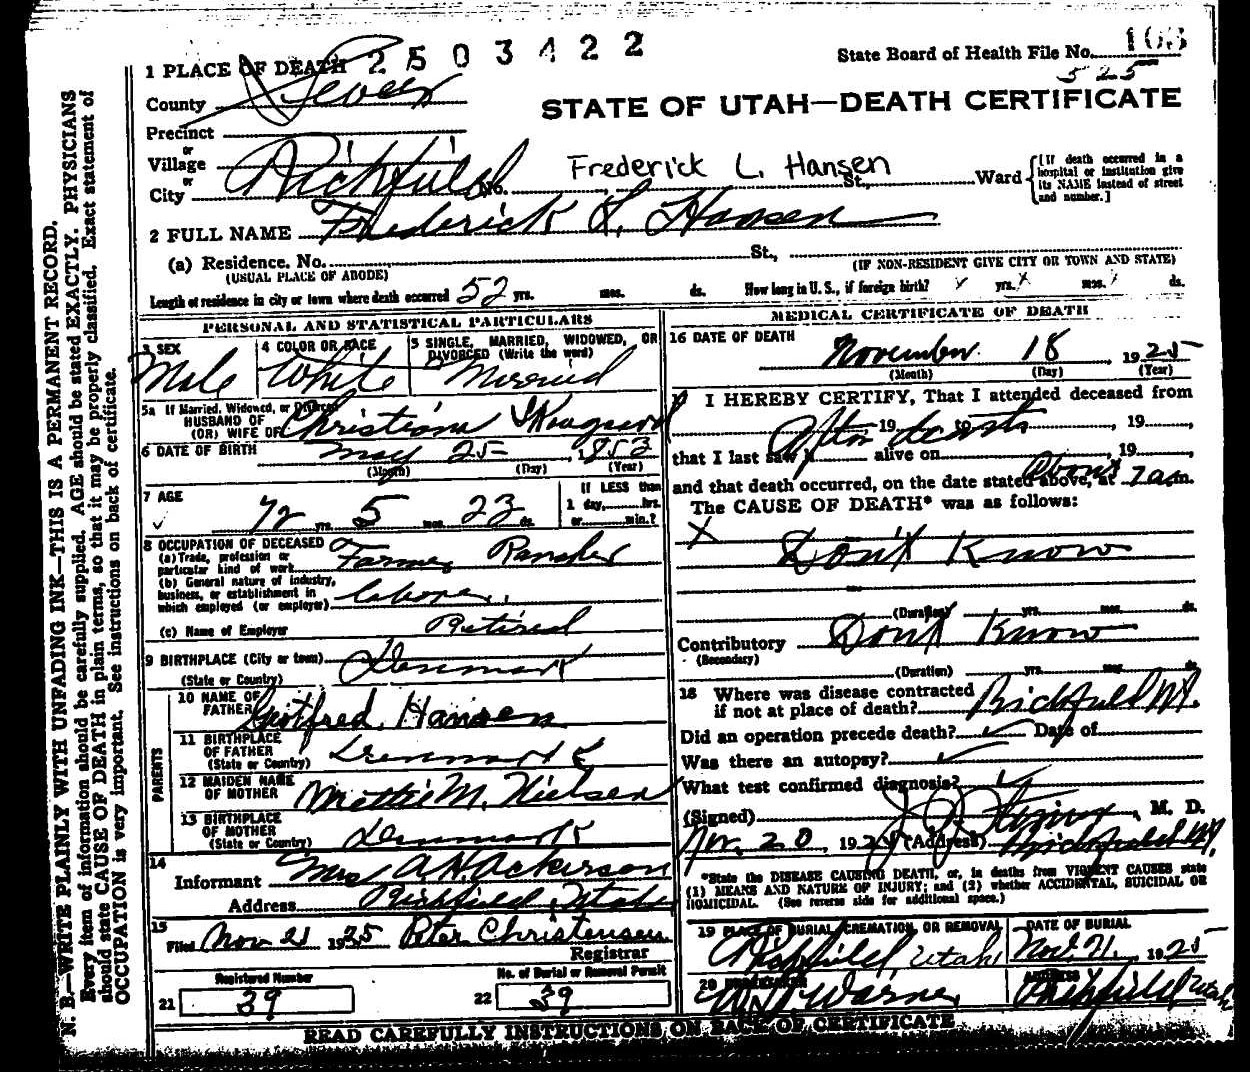 2503422
State Board of Health File No. 103
525
1 PLACE OF DEATH
County Sevier
STATE OF UTAH—DEATH CERTIFICATE
Precinct
or
Village
or
City Richfield No. St., Ward
Frederick L. Hansen
[If death occurred in a hospital or institution give its NAME instead of street and number.]
2 FULL NAME Frederick L. Hansen
(a) Residence. No. St.,
(USUAL PLACE OF ABODE) (IF NON-RESIDENT GIVE CITY OR TOWN AND STATE)
Length of residence in city or town where death occurred 52 yrs. mos. ds. How long in U. S., if foreign birth? yrs. mos. ds.
PERSONAL AND STATISTICAL PARTICULARS
3 SEX
Male
4 COLOR OR RACE
White
5 SINGLE, MARRIED, WIDOWED, OR DIVORCED (Write the word)
Married
5a If Married, Widowed, or Divorced
HUSBAND OF
(OR) WIFE OF Christiana
6 DATE OF BIRTH May 25 1853
(Month) (Day) (Year)
7 AGE
72 yrs. 5 mos. 23 ds.
If LESS than
1 day, hrs.
or min.?
8 OCCUPATION OF DECEASED
(a) Trade, profession or
particular kind of work Farmer Rancher
(b) General nature of industry,
business, or establishment in
which employed (or employer) laborer.
(c) Name of Employer Retired
9 BIRTHPLACE (City or town)
(State or Country) Denmark
PARENTS
10 NAME OF
FATHER Hansen
11 BIRTHPLACE
OF FATHER
(State or Country) Denmark
12 MAIDEN NAME
OF MOTHER Mettie M. Nielsen
13 BIRTHPLACE
OF MOTHER
(State or Country) Denmark
14
Informant Mrs A. H. Ackerson
Address Richfield, Utah
15
Filed Nov 21 1925 Peter Christensen
Registrar
Registered Number
21 39
No. of Burial or Removal Permit
22 39
MEDICAL CERTIFICATE OF DEATH
16 DATE OF DEATH
November 18, 1925
(Month) (Day) (Year)
I HEREBY CERTIFY, That I attended deceased from
, 19 to , 19
After death
that I last saw h alive on , 19
and that death occurred, on the date stated above, at About 7 a m.
The CAUSE OF DEATH* was as follows:
X Don't Know
(Duration) yrs. mos. ds.
Contributory Don't Know
(Secondary)
(Duration) yrs. mos. ds.
18 Where was disease contracted
if not at place of death? Richfield Ut.
Did an operation precede death? Date of
Was there an autopsy?
What test confirmed diagnosis?
(Signed) , M. D.
Nov. 20, 1925 (Address) Richfield Ut.
*State the DISEASE CAUSING DEATH, or, in deaths from VIOLENT CAUSES state
(1) MEANS AND NATURE OF INJURY; and (2) whether ACCIDENTAL, SUICIDAL OR
HOMICIDAL. (See reverse side for additional space.)
19 PLACE OF BURIAL, CREMATION, OR REMOVAL
Richfield, Utah
DATE OF BURIAL
Nov. 21, 1925
20 UNDERTAKER
Warner
ADDRESS
Richfield Utah
READ CAREFULLY INSTRUCTIONS ON BACK OF CERTIFICATE
N. B.—WRITE PLAINLY WITH UNFADING INK—THIS IS A PERMANENT RECORD.
Every item of information should be carefully supplied. AGE should be stated EXACTLY. PHYSICIANS
should state CAUSE OF DEATH in plain terms, so that it may be properly classified. Exact statement of
OCCUPATION is very important. See instructions on back of certificate.